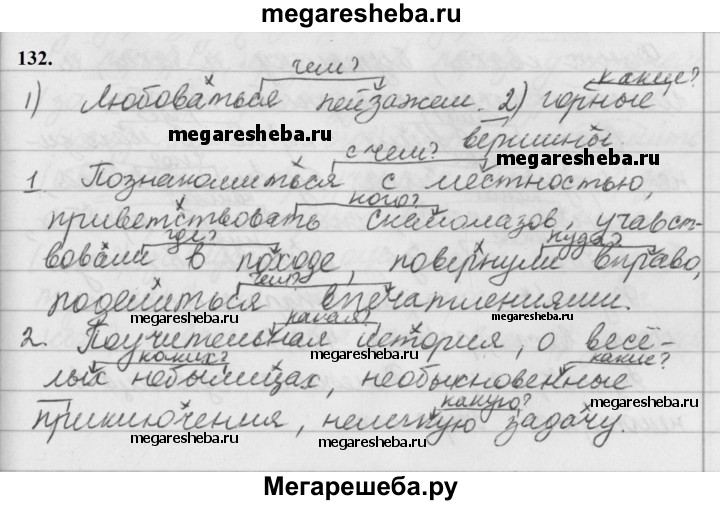 megaresheba.ru
132.
чем? какие?
1) Любоваться пейзажем. 2) горные
megaresheba.ru
вершины.
megaresheba.ru
с чем?
1. Познакомиться с местностью,
megaresheba.ru
кого?
приветствовать скалолазов, учавст-
где? куда?
вовали в походе, повернули вправо,
чем?
поделиться впечатлениями.
megaresheba.ru
какая?
2. Поучительная история, о весё-
megaresheba.ru
каких? какие?
лых небылицах, необыкновенные
megaresheba.ru
какую?
приключения, нелегкую задачу.
megaresheba.ru
megaresheba.ru
Мегарешеба.ру